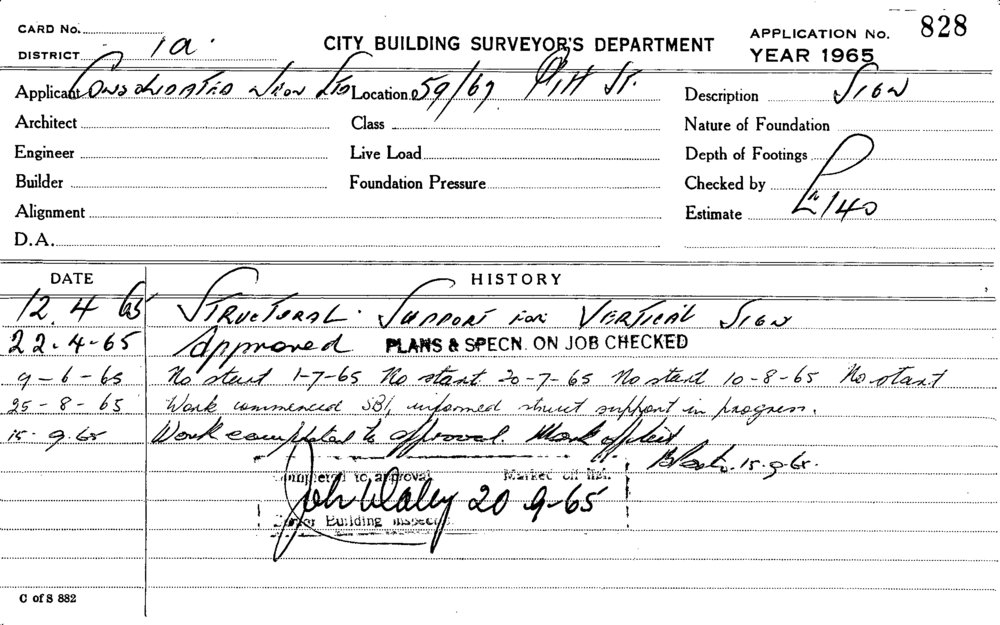 CARD No.
DISTRICT 1a.
CITY BUILDING SURVEYOR'S DEPARTMENT
APPLICATION No. 828
YEAR 1965
Applicant Consolidated Neon Ltd Location 59/67 Pitt St. Description Sign
Architect Class Nature of Foundation
Engineer Live Load Depth of Footings
Builder Foundation Pressure Checked by
Alignment Estimate £140
D.A.
DATE HISTORY
12.4 65 Structural Support for Vertical Sign
22.4-65 Approved PLANS & SPECN. ON JOB CHECKED
9-6-65 No start 1-7-65 No start 20-7-65 No start 10-8-65 No start
25-8-65 Work commenced SBI, informed struct support in progress.
15.9.65 Work completed to approval. Mark off list
15.9.65.
Completed to approval Market off list.
20 9-65
Senior Building Inspector
C of S 882